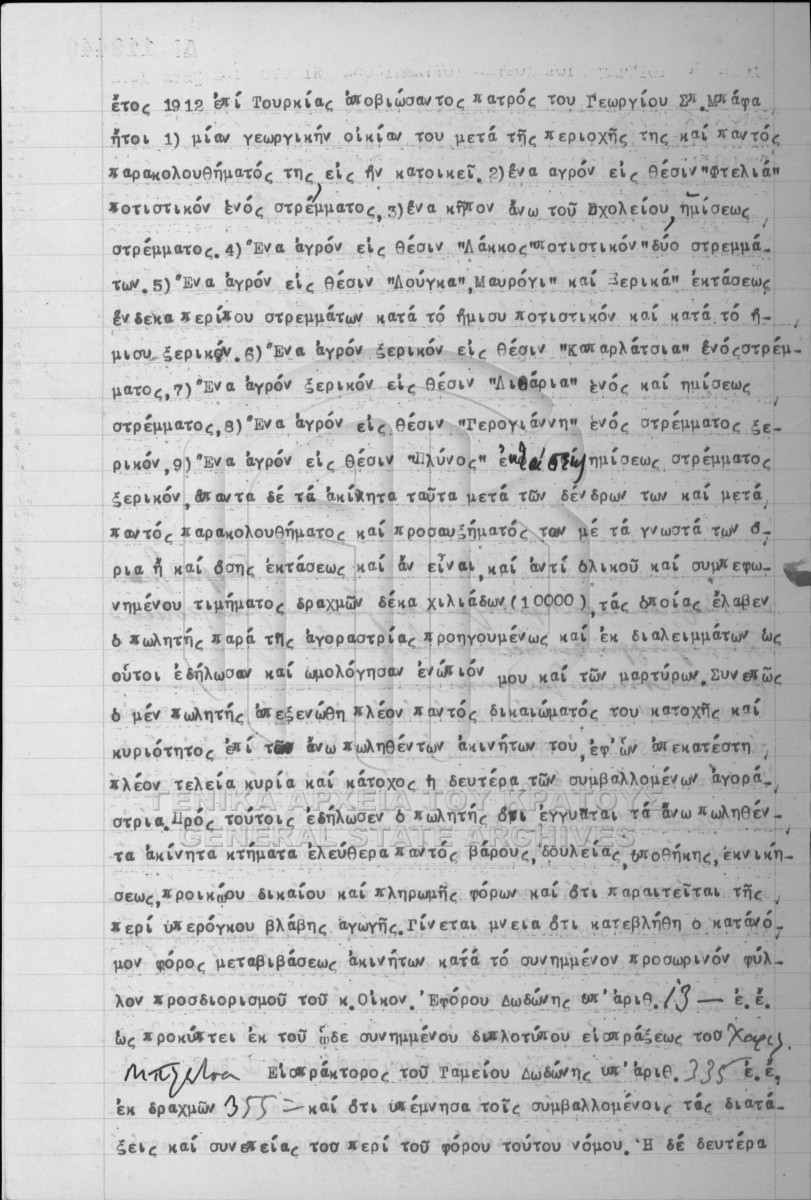 ἔτος 1912 ἐπί Τουρκίας ἀποβιώσαντος πατρός του Γεωργίου Σπ. Μπάφα
ἤτοι 1) μίαν γεωργικήν οἰκίαν του μετά τῆς περιοχῆς της καί παντός
παρακολουθήματός της εἰς ἥν κατοικεῖ. 2) ἕνα ἀγρόν εἰς θέσιν "Φτελιά"
ποτιστικόν ἑνός στρέμματος, 3) ἕνα κῆπον ἄνω τοῦ Σχολείου, ἡμίσεως
στρέμματος. 4) Ἕνα ἀγρόν εἰς θέσιν "Λάκκος "ποτιστικόν" δύο στρεμμά-
των. 5) Ἕνα ἀγρόν εἰς θέσιν "Λούγκα", Μαυρόγι" καί Ξερικά" ἐκτάσεως
ἕνδεκα περίπου στρεμμάτων κατά τό ἥμισυ ποτιστικόν καί κατά τό ἥ-
μισυ ξερικόν. 6) Ἕνα ἀγρόν ξερικόν εἰς θέσιν "Καπαρλάτσια" ἑνός στρέμ-
ματος, 7) Ἕνα ἀγρόν ξερικόν εἰς θέσιν "Λιθάρια" ἑνός καί ἡμίσεως
στρέμματος, 8) Ἕνα ἀγρόν εἰς θέσιν "Γερογιάννη" ἑνός στρέμματος ξε-
ρικόν, 9) Ἕνα ἀγρόν εἰς θέσιν "Πλύνος" ἐκτάσεως ἡμίσεως στρέμματος
ξερικόν, ἅπαντα δέ τά ἀκίνητα ταῦτα μετά τῶν δένδρων των καί μετά
παντός παρακολουθήματος καί προσαυξήματός των μέ τά γνωστά των ὅ-
ρια ἤ καί ὅσης ἐκτάσεως καί ἄν εἶναι, καί ἀντί ὁλικοῦ καί συμπεφω-
νημένου τιμήματος δραχμῶν δέκα χιλιάδων (10000), τάς ὁποίας ἔλαβεν
ὁ πωλητής παρά τῆς ἀγοραστρίας προηγουμένως καί ἐκ διαλειμμάτων ὡς
οὗτοι ἐδήλωσαν καί ὡμολόγησαν ἐνώπιόν μου καί τῶν μαρτύρων. Συνεπῶς
ὁ μέν πωλητής ἀπεξενώθη πλέον παντός δικαιώματός του κατοχῆς καί
κυριότητος ἐπί τῶν ἄνω πωληθέντων ἀκινήτων του, ἐφ' ὧν ἀπεκατέστη
πλέον τελεία κυρία καί κάτοχος ἡ δευτέρα τῶν συμβαλλομένων ἀγορά-
ΓΕΝΙΚΑ ΑΡΧΕΙΑ ΤΟΥ ΚΡΑΤΟΥΣ
στρια. Πρός τούτοις ἐδήλωσεν ὁ πωλητής ὅτι ἐγγυᾶται τά ἄνω πωληθέν-
GENERAL STATE ARCHIVES
τα ἀκίνητα κτήματα ἐλεύθερα παντός βάρους, δουλείας, ὑποθήκης, ἐκνική-
σεως, προικώου δικαίου καί πληρωμῆς φόρων καί ὅτι παραιτεῖται τῆς
περί ὑπερόγκου βλάβης ἀγωγῆς. Γίνεται μνεια ὅτι κατεβλήθη ὁ κατάνό-
μον φόρος μεταβιβάσεως ἀκινήτων κατά τό συνημμένον προσωρινόν φύλ-
λον προσδιορισμοῦ τοῦ κ. Οἰκον. Ἐφόρου Δωδώνης ὑπ' ἀριθ. 13 — ἐ. ἔ.
ὡς προκύπτει ἐκ τοῦ ὧδε συνημμένου διπλοτύπου εἰσπράξεως τοῦ
Εἰσπράκτορος τοῦ Ταμείου Δωδώνης ὑπ' ἀριθ. 335 ἐ. ἔ,
ἐκ δραχμῶν 355 = καί ὅτι ὑπέμνησα τοῖς συμβαλλομένοις τάς διατά-
ξεις καί συνεπείας του περί τοῦ φόρου τούτου νόμου. Ἡ δέ δευτέρα